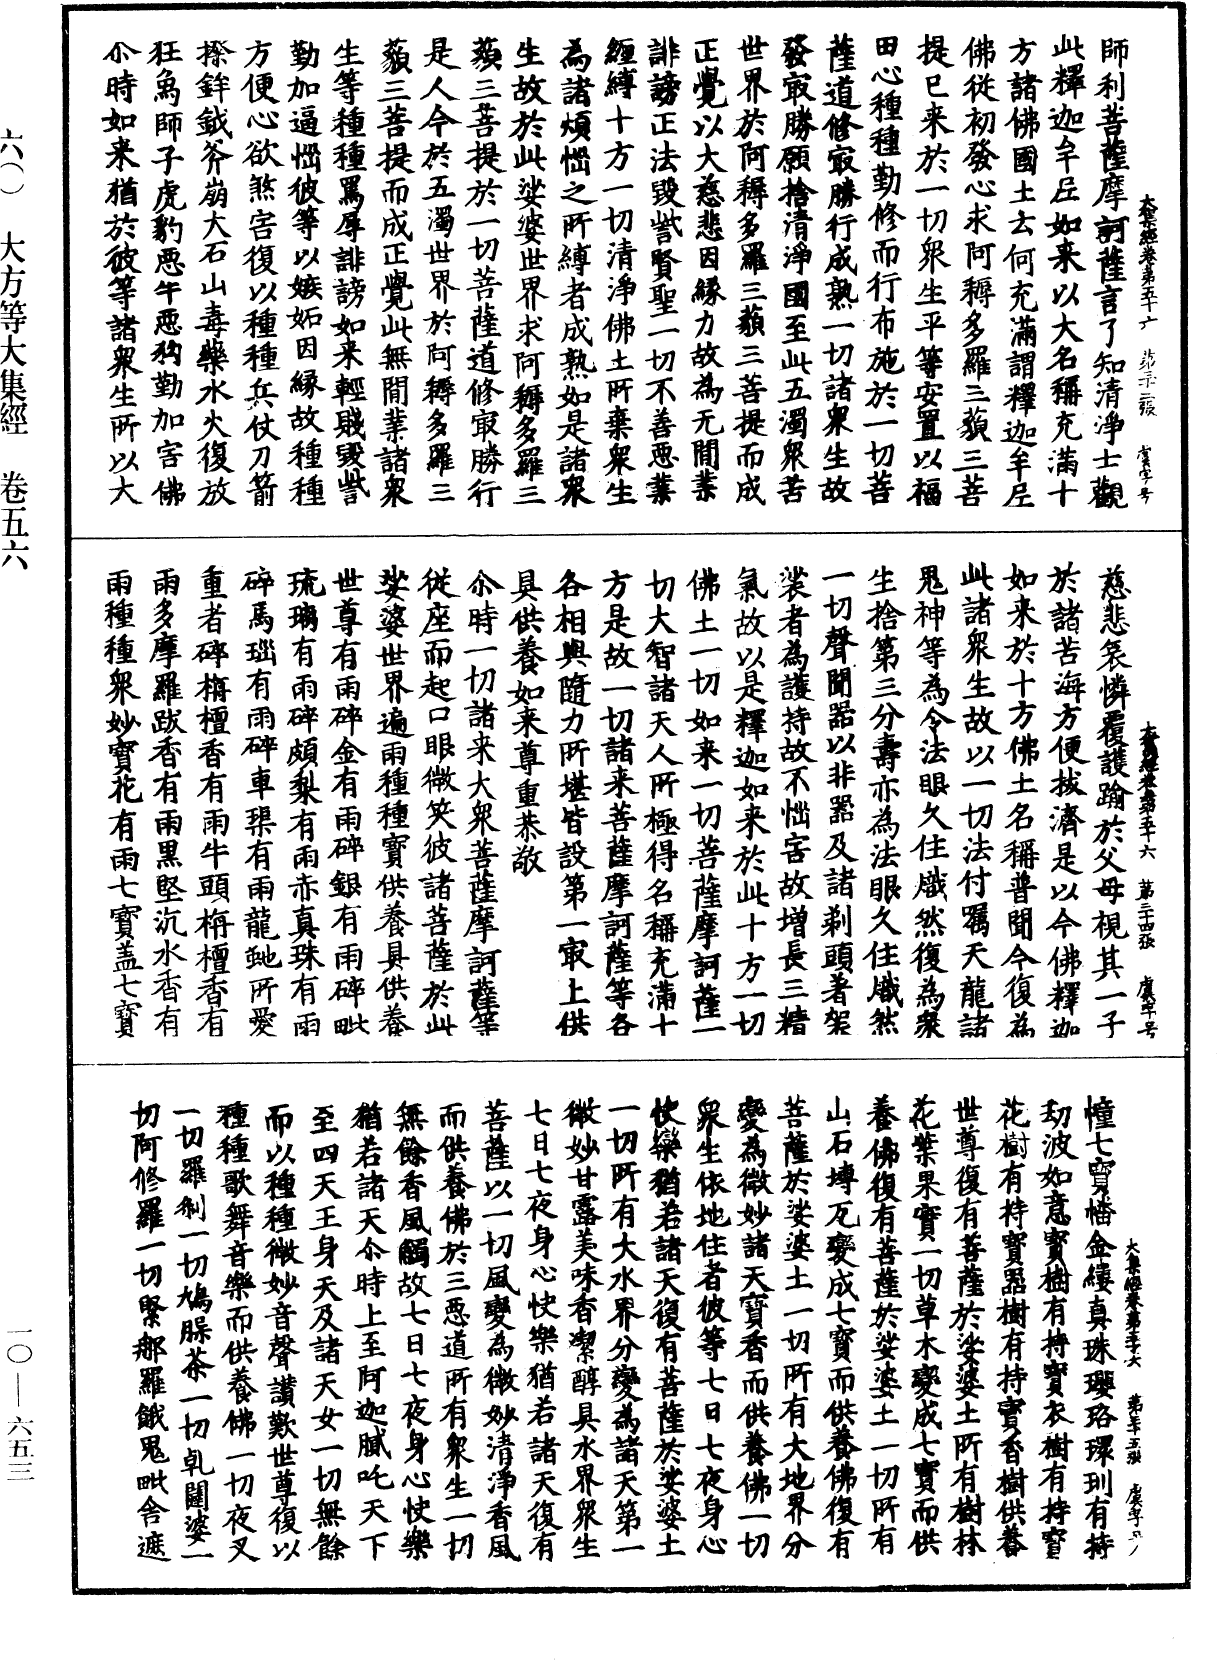 六〇　大方等大集經　卷五六
一〇—六五三
大集經卷第五十六　第三十三張　虞字号
師利菩薩摩訶薩言了知清淨士觀
此釋迦牟尼如来以大名稱充滿十
方諸佛國土去何充滿謂釋迦牟尼
佛從初發心求阿耨多羅三藐三菩
提已来於一切衆生平等安置以福
田心種種勤修而行布施於一切菩
薩道修㝡勝行成熟一切諸衆生故
發㝡勝願捨清淨國至此五濁衆苦
世界於阿耨多羅三藐三菩提而成
正覺以大慈悲因緣力故為无閒業
誹謗正法毀呰賢聖一切不善惡業
纏縛十方一切清淨佛土所棄衆生
為諸煩惱之所縛者成熟如是諸衆
生故於此娑婆世界求阿耨多羅三
藐三菩提於一切菩薩道修㝡勝行
是人今於五濁世界於阿耨多羅三
藐三菩提而成正覺此無閒業諸衆
生等種種罵辱誹謗如来輕賤毀呰
勤加逼惱彼等以嫉妬因緣故種種
方便心欲煞害復以種種兵仗刀箭
攥鉾鉞斧崩大石山毒藥水火復放
狂象師子虎豹惡牛惡狗勤加害佛
尒時如来猶於彼等諸衆生所以大
大集經卷第五十六　第三十四張　虞字号
慈悲哀憐覆護踰於父母視其一子
於諸苦海方便拔濟是以今佛釋迦
如来於十方佛土名稱普聞今復為
此諸衆生故以一切法付囑天龍諸
鬼神等為令法眼久住熾然復為衆
生捨第三分壽亦為法眼久住熾然
一切聲聞器以非器及諸剃頭著袈
裟者為護持故不惱害故增長三精
氣故以是釋迦如来於此十方一切
佛土一切如来一切菩薩摩訶薩一
切大智諸天人所極得名稱充滿十
方是故一切諸来菩薩摩訶薩等各
各相與隨力所堪皆設第一㝡上供
具供養如来尊重恭敬
尒時一切諸来大衆菩薩摩訶薩等
從座而起口眼微笑彼諸菩薩於此
娑婆世界遍雨種種寶供養具供養
世尊有雨碎金有雨碎銀有雨碎毗
琉璃有雨碎頗梨有雨赤真珠有雨
碎馬瑙有雨碎車𤦲有雨龍虵所愛
重者碎栴檀香有雨牛頭栴檀香有
雨多摩羅跋香有雨黑堅沉水香有
雨種種衆妙寶花有雨七寶盖七寶
大集經卷第五十六　第三十五張　虞字号
幢七寶幡金縷真珠瓔珞環玔有持
劫波如意寶樹有持寶衣樹有持寶
花樹有持寶器樹有持寶香樹供養
世尊復有菩薩於娑婆土所有樹林
花葉果實一切草木變成七寶而供
養佛復有菩薩於娑婆土一切所有
山石塼瓦變成七寶而供養佛復有
菩薩於娑婆土一切所有大地界分
變為微妙諸天寶香而供養佛一切
衆生依地住者彼等七日七夜身心
快樂猶若諸天復有菩薩於娑婆土
一切所有大水界分變為諸天第一
微妙甘露美味香潔醇具水界衆生
七日七夜身心快樂猶若諸天復有
菩薩以一切風變為微妙清淨香風
而供養佛於三惡道所有衆生一切
無餘香風觸故七日七夜身心快樂
猶若諸天尒時上至阿迦膩吒天下
至四天王身天及諸天女一切無餘
而以種種微妙音聲讃歎世尊復以
種種歌舞音樂而供養佛一切夜叉
一切羅剎一切鳩槃茶一切乹闥婆一
切阿修羅一切緊那羅餓鬼毗舍遮